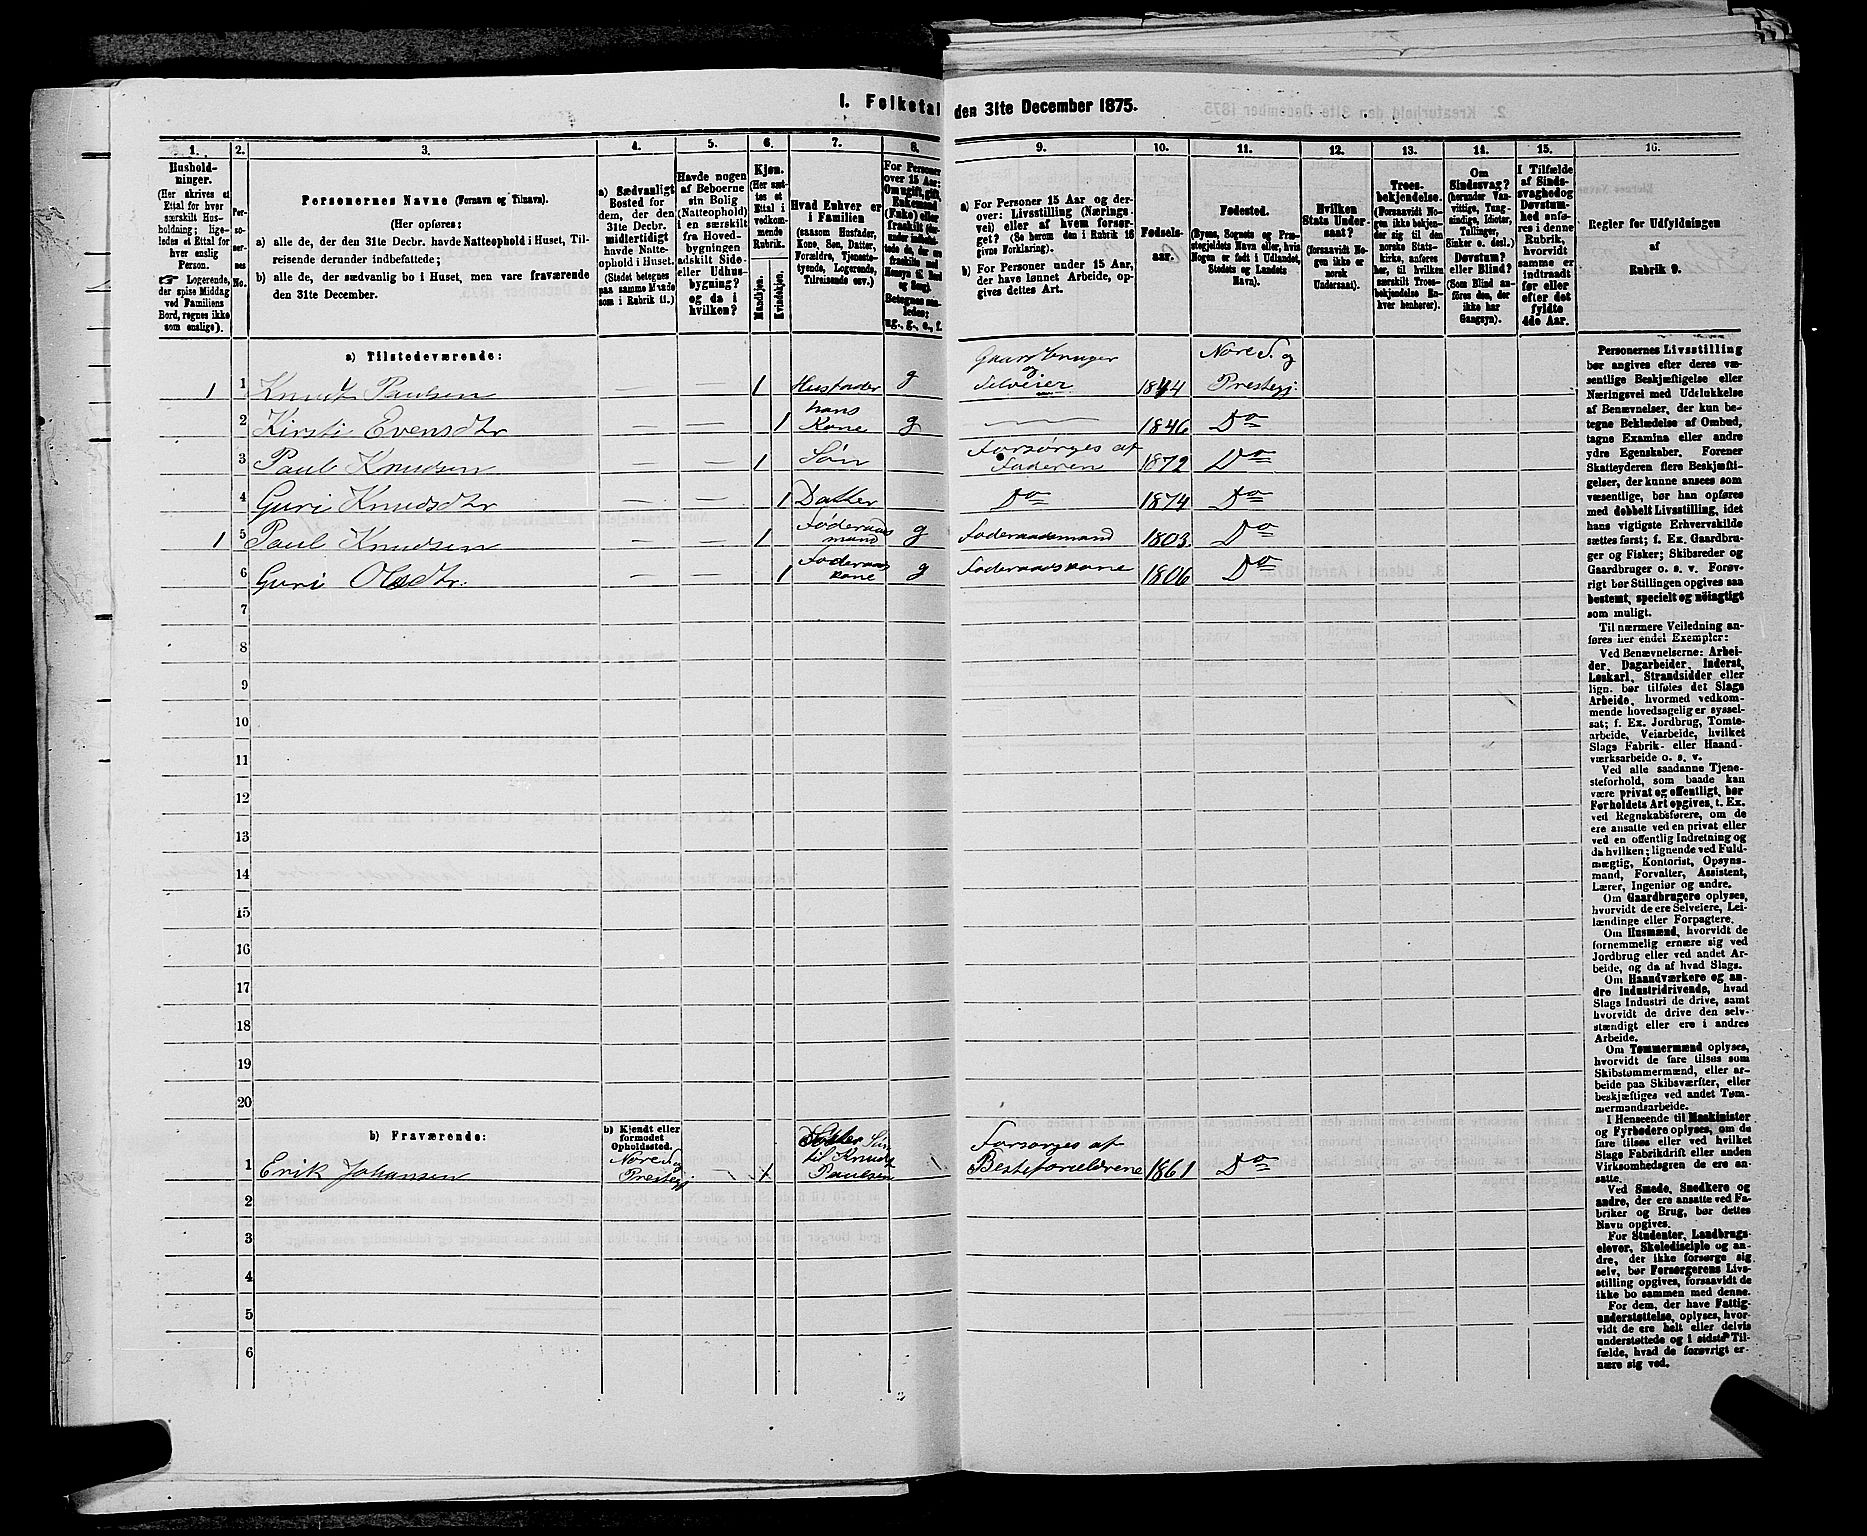 1. Folketal den 31te December 1875.
1. 2. 3. 4. 5. 6. 7. 8. 9. 10. 11. 12. 13. 14. 15. 16.
Hushold-
ninger.
(Her skrives et
Ettal for hver
særskilt Hus-
holdning; lige-
ledes et Ettal for
hver enslig
Person.
☞ Logerende,
der spise Middag
ved Familiens
Bord, regnes ikke
som enslige).
Per-
so-
ner-
nes
No.
Personernes Navne (Fornavn og Tilnavn).
(Her opføres:
a) alle de, der den 31te Decbr. havde Natteophold i Huset, Til-
reisende derunder indbefattede;
b) alle de, der sædvanlig bo i Huset, men vare fraværende
den 31te December.
a) Sædvanligt
Bosted for
dem, der den
31te Decbr.
midlertidigt
havde Natte-
ophold i Huset.
(Stedet betegnes
paa samme Maade
som i Rubrik 11.)
Havde nogen
af Beboerne
sin Bolig
(Natteophold)
i en særskilt
fra Hoved-
bygningen
adskilt Side-
eller Udhus-
bygning?
og da i
hvilken?
Kjøn.
(Her sæt-
tes et
Ettal i
vedkom-
mende
Rubrik.
Mandkjøn.
Kvindekjøn.
Hvad Enhver er
i Familien
(saasom Husfader,
Kone, Søn, Datter,
Forældre, Tjeneste-
tyende, Logerende,
Tilreisende osv.)
For Personer
over 15 Aar:
Om ugift, gift,
Enkemand
(Enke) eller
fraskilt
Betegnes saa-
ledes:
ug., g., e., f.
a) For Personer 15 Aar og der-
over: Livsstilling (Nærings-
vei) eller af hvem forsør-
get? (Se herom den i Rubrik 16
givne Forklaring).
b) For Personer under 15 Aar,
der have lønnet Arbeide, op-
gives dettes Art.
Fødsels-
aar.
Fødested.
(Byens, Sognets og Præ-
stegjeldets Navn eller, hvis
Nogen er født i Udlandet,
Stedets og Landets
Navn).
Hvilken
Stats Under-
saat?
(forsaavidt No-
gen ikke er
norsk
Undersaat).
Troes-
bekjendelse.
(Forsaavidt No-
gen ikke bekjen-
der sig til den
norske Stats-
kirke, anføres
her, til hvilken
særskilt Troes-
bekjendelse En-
hver henhører).
Om
Sindssvag?
(herunder Van-
vittige, Tung-
sindige, Idioter,
Tullinger,
Sinker o. desl.)
Døvstum?
eller Blind?
(Som Blind an-
føres den, der
ikke har
Gangsyn).
I Tilfælde
af Sinds-
svaghed og
Døvstum-
hed anfø-
res i denne
Rubrik,
hvorvidt
samme er
indtraadt
før eller
efter det
fyldte
4de Aar.
Regler for Udfyldningen
af
Rubrik 9.
a) Tilstedeværende:
1 1 Knut Paulsen — — 1 Husfader g Gaardbruger og Selveier 1844 Nore S. og Prestegj:
2 Kirsti Evensdtr — — 1 hans Kone g — 1846 Do
3 Paul Knudsen — — 1 Søn Forsørges af Faderen 1872 Do
4 Guri Knudsdtr — — 1 Datter Do 1874 Do
1 5 Paul Knudsen — — 1 Føderaads mand g Foderaadsmand 1803 Do
6 Guri Olsdtr. — — 1 Foderaads kone g Foderaadskone 1806 Do
7
8
9
10
11
12
13
14
15
16
17
18
19
20
b) Fraværende:
b) Kjendt eller
formodet
Opholdssted.
1 Erik Johansen Nore S. og Prestegj Søn til Knud Paulsen Forsørges af Besteforældrene 1861 Do
2
3
4
5
6
Personernes Livsstilling
bør angives efter deres væ-
sentlige Beskjæftigelse eller
Næringsvei med Udelukkelse
af Benævnelser, der kun be-
tegne Beklædelse af Ombud,
tagne Examina eller andre
ydre Egenskaber. Forener
Skatteyderen flere Beskjæfti-
gelser, der kunne ansees som
væsentlige, bør han opføres
med dobbelt Livsstilling, idet
hans vigtigste Erhvervskilde
sættes først; f. Ex. Gaardbru-
ger og Fisker; Skibsreder og
Gaardbruger o. s. v. Forøv-
rigt bør Stillingen opgives saa
bestemt, specielt og nøiagtigt
som muligt.
Til nærmere Veiledning an-
føres her endel Exempler:
Ved Benævnelserne: Arbei-
der, Dagarbeider, Inderst,
Løskarl, Strandsidder eller
lign. bør tilføies det Slags
Arbeide, hvormed vedkom-
mende hovedsagelig er syssel-
sat; f. Ex. Jordbrug, Tomte-
arbeide, Veiarbeide, hvilket
Slags Fabrik- eller Haand-
værksarbeide o. s. v.
Ved alle saadanne Tjene-
steforhold, som baade kan
være privat og offentligt, bør
Forholdets Art opgives, t. Ex.
ved Regnskabsførere, om de
ere ansatte ved en privat eller
ved en offentlig Indretning og
da hvilken; lignende ved Fuld-
mægtig, Kontorist, Opsyns-
mand, Forvalter, Assistent,
Lærer, Ingeniør og andre.
Om Gaardbrugere oplyses,
hvorvidt de ere Selveiere, Lei-
lændinge eller Forpagtere.
Om Husmænd, hvorvidt de
fornemmelig ernære sig ved
Jordbrug eller ved andet Ar-
beide, og da af hvad Slags.
Om Haandværkere og an-
dre Industridrivende, hvad
Slags Industri de drive, samt
hvorvidt de drive den selv-
stændigt eller ere i andres
Arbeide.
Om Tømmermænd oplyses,
hvorvidt de fare tilsøs som
Skibstømmermænd, eller ar-
beide paa Skibsværfter, eller
beskjæftiges ved andet Tøm-
mermandsarbeide.
I Henseende til Maskinister
og Fyrbødere oplyses, om de
fare tilsøs eller ved hvilket
Slags Fabrikdrift eller anden
Virksomhedsgren de ere an-
satte.
Ved Smede, Snedkere og
andre, der ere ansatte ved Fa-
briker og Brug, bør dettes
Navn opgives.
For Studenter, Landbrugs-
elever, Skoledisciple og an-
dre, der ikke forsørge sig
selv, bør Forsørgerens Livs-
stilling opgives, forsaavidt de
ikke bo sammen med denne.
For dem, der have Fattig-
understøttelse, oplyses, hvor-
vidt de ere helt eller delvis
understøttede og i sidste Til-
fælde, hvad de forøvrigt er-
nære sig ved.